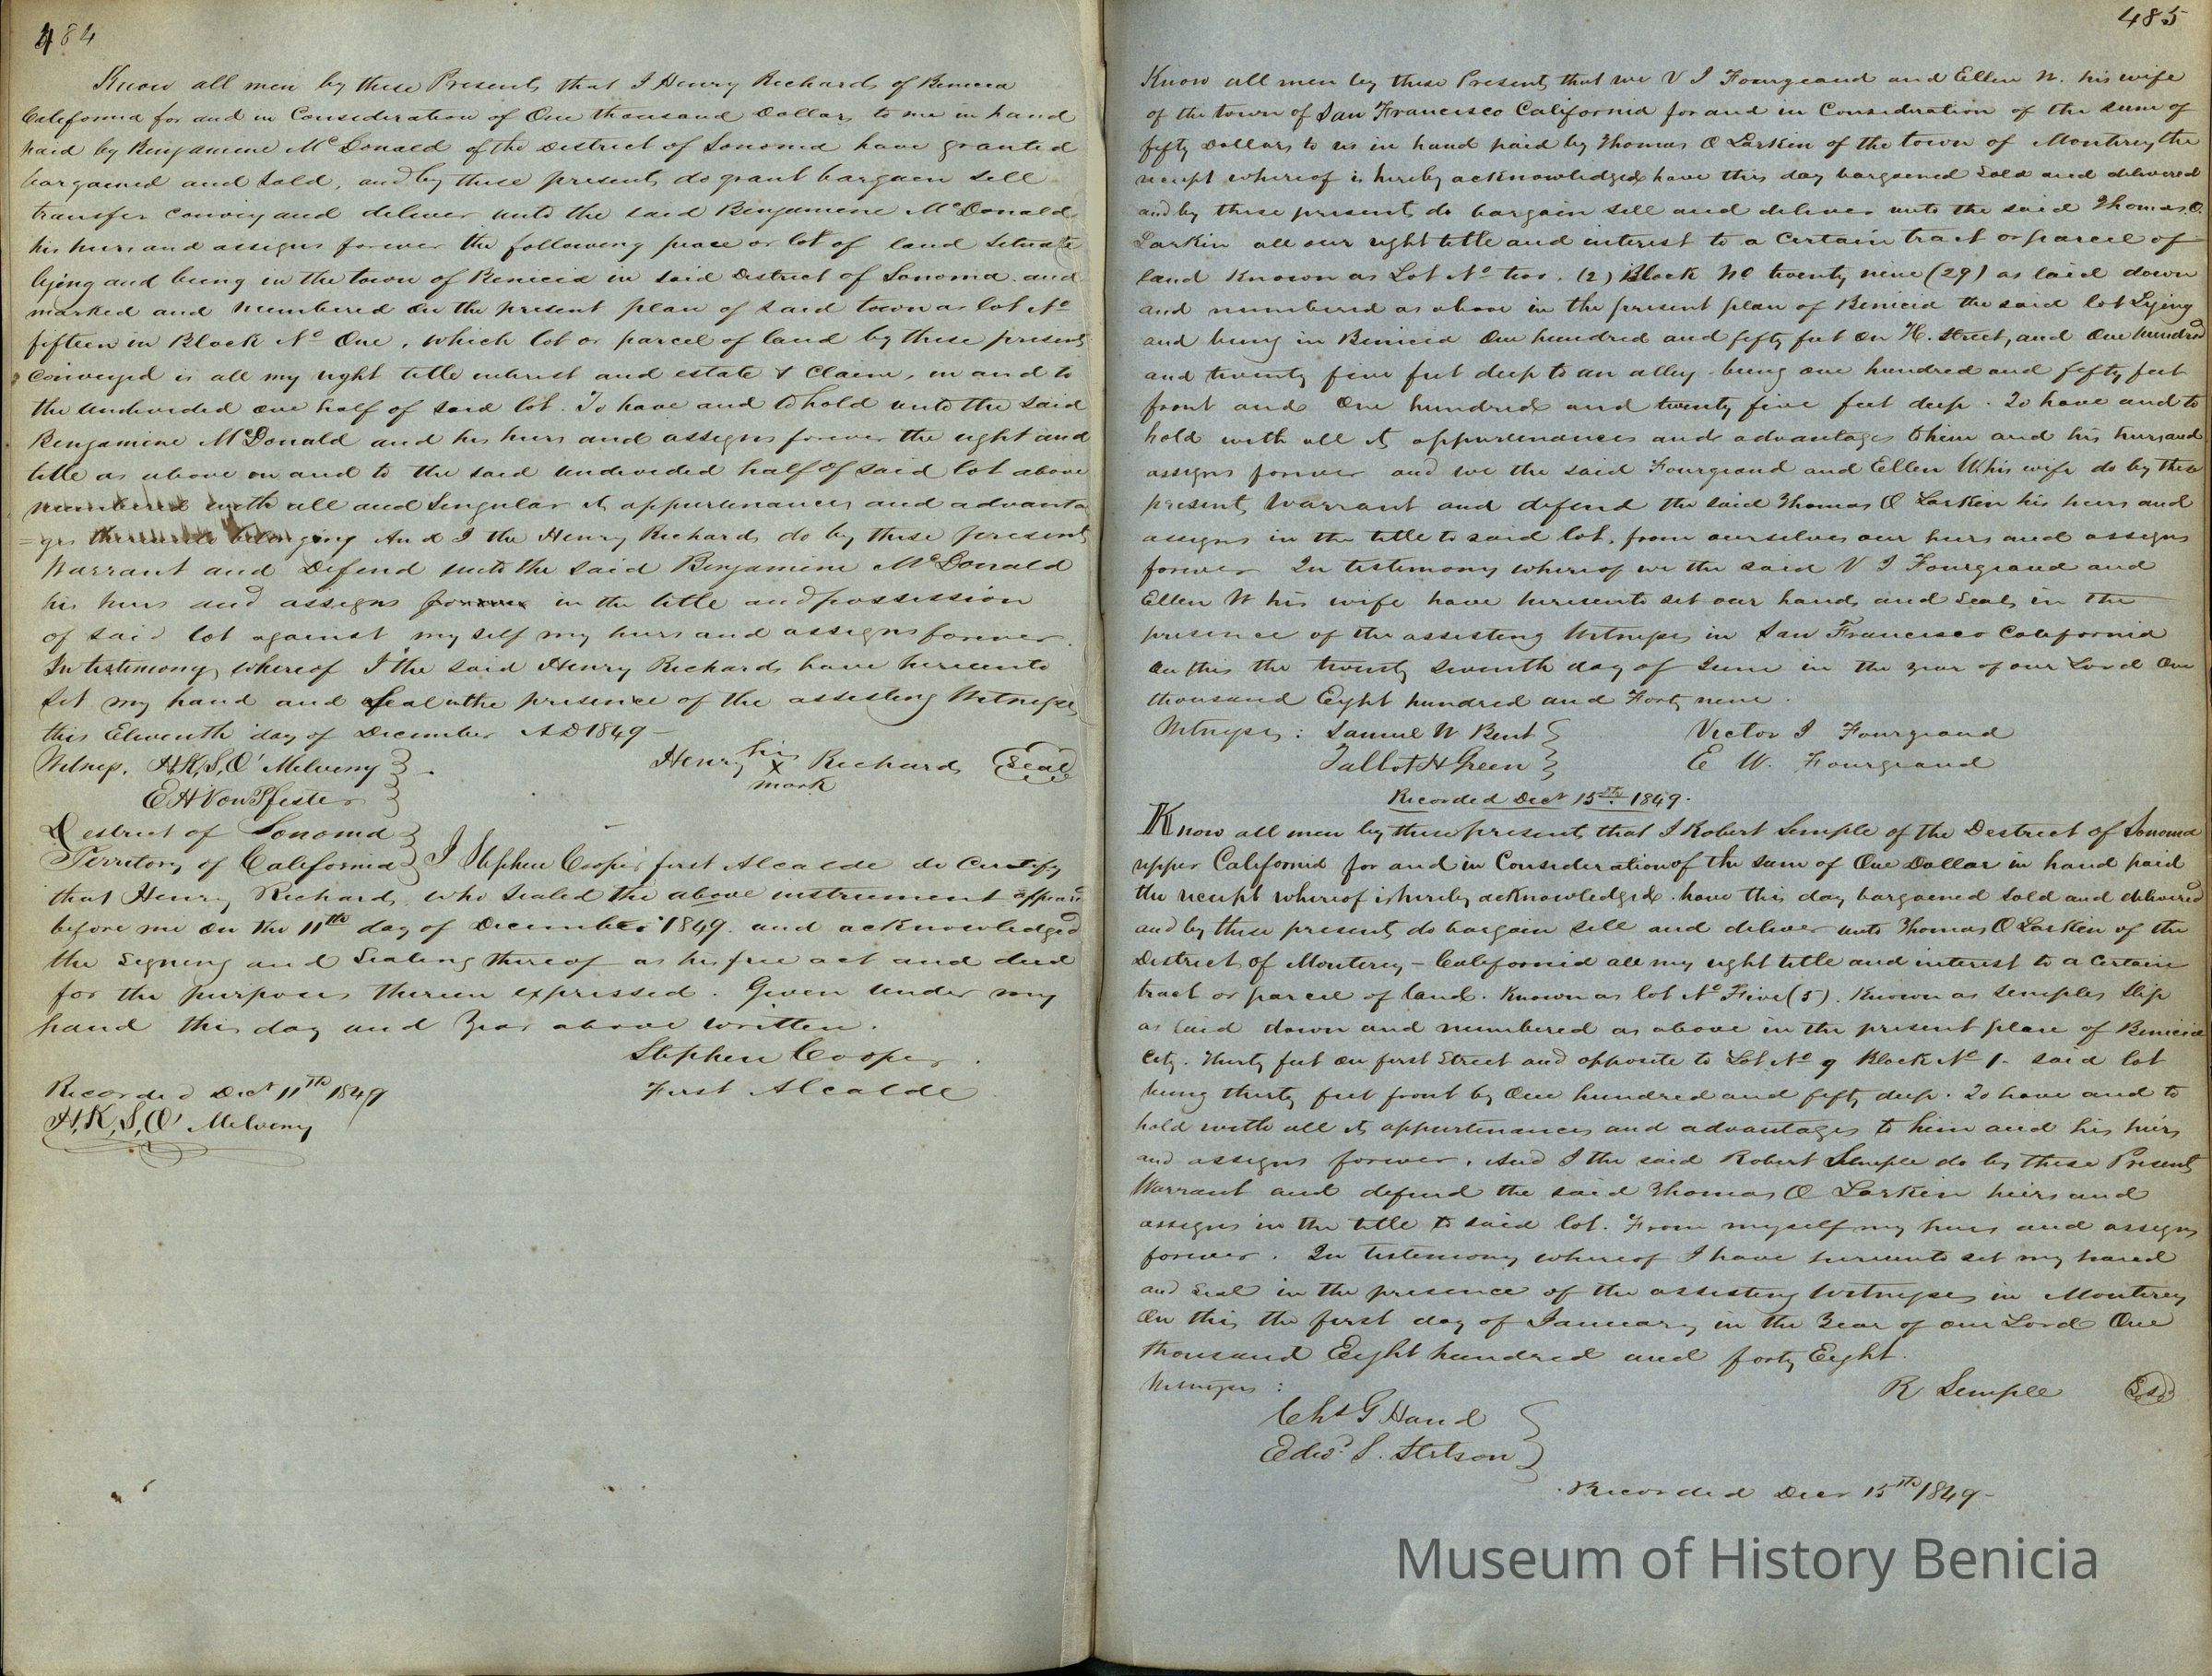 484
Know all men by these Presents that I Henry Richards of Benicia
California for and in Consideration of One thousand Dollars to me in hand
paid by Benjamine McDonald of the District of Sonoma have granted
bargained and Sold, and by these presents do grant bargain sell
transfer convey and deliver unto the said Benjamine McDonald
his heirs and assigns forever the following peace or lot of land situate
lying and being in the town of Benicia in said District of Sonoma and
marked and numbered on the present plan of said town as lot No
fifteen in Block No One, which lot or parcel of land by these presents
Conveyed is all my right title interest and estate & Claim, in and to
the undivided one half of said lot. To have and to hold unto the said
Benjamine McDonald and his heirs and assigns forever the right and
title as above on and to the said undivided half of said lot above
numbered with all and Singular its appurtenances and advanta
=ges belonging And I the Henry Richards do by these presents
Warrant and Defend unto the said Benjamine McDonald
his heirs and assigns forever in the title and possession
of said lot against my self my heirs and assigns forever.
In testimony whereof I the said Henry Richards have hereunto
set my hand and Seal in the presence of the assisting Witnesses
this Eleventh day of December AD 1849 –
Witness. H,K,S,O' Melveny
Henry his X mark Richards Seal
E H Von Pfister
District of Sonoma
Territory of California I Stephen Cooper first Alcalde do Certify
that Henry Richards who sealed the above instrument appeared
before me on the 11th day of December 1849. and acknowledged
the Signing and Sealing thereof as his free act and deed
for the purposes therein expressed. Given under my
hand this day and Year above written.
Stephen Cooper.
First Alcalde
Recorded Decr 11th 1849
H,K,S,O' Melveny
485
Know all men by these Presents that we V J Fourgeaud and Ellen W. his wife
of the town of San Francisco California for and in Consideration of the sum of
fifty Dollars to us in hand paid by Thomas O Larkin of the town of Monterey the
receipt whereof is hereby acknowledged have this day bargained Sold and delivered
and by these presents do bargain sell and deliver unto the said Thomas O.
Larkin all our right title and interest to a Certain tract or parcel of
land Known as Lot No two. (2) Block No twenty nine (29) as laid down
and numbered as above in the present plan of Benicia the said lot Lying
and being in Benicia One hundred and fifty feet on H. Street, and One hundred
and twenty five feet deep to an alley being one hundred and fifty feet
front and One hundred and twenty five feet deep. To have and to
hold with all its appurtenances and advantages to him and his heirs and
assigns forever and we the said Fourgeaud and Ellen W. his wife do by these
presents Warrant and defend the said Thomas O Larkin his heirs and
assigns in the title to said lot, from ourselves our heirs and assigns
forever In testimony whereof we the said V J Fourgeaud and
Ellen W his wife have hereunto set our hands and Seals in the
presence of the assisting Witnesses in San Francisco California
on this the twenty seventh day of June in the year of our Lord One
thousand Eight hundred and Forty nine.
Witnesses: Samuel W Bent
Victor J Fourgeaud
Talbot H Green
E W. Fourgeaud
Recorded Decr 15th. 1849.
Know all men by these presents that I Robert Semple of the District of Sonoma
upper California for and in Consideration of the sum of One Dollar in hand paid
the receipt whereof is hereby acknowledged. have this day bargained sold and delivered
and by these presents do bargain sell and deliver unto Thomas O Larkin of the
District of Monterey – California all my right title and interest to a Certain
tract or parcel of land. Known as lot No Five (5). Known as Semples Slip
as laid down and numbered as above in the present plan of Benicia
City. thirty feet on first Street and opposite to Lot No 9 Block No 1. said lot
being thirty feet front by One hundred and fifty deep. To have and to
hold with all its appurtenances and advantages to him and his heirs
and assigns forever. And I the said Robert Semple do by these Presents
Warrant and defend the said Thomas O Larkin heirs and
assigns in the title to said lot. From myself my heirs and assigns
forever. In testimony whereof I have hereunto set my hand
and Seal in the presence of the assisting Witnesses in Monterey
On this the first day of January in the Year of our Lord One
thousand Eight hundred and forty Eight.
Witnesses:
R Semple
Chs G Hand
Edwd. S. Stetson
Recorded Decr 15th 1849 –
Museum of History Benicia